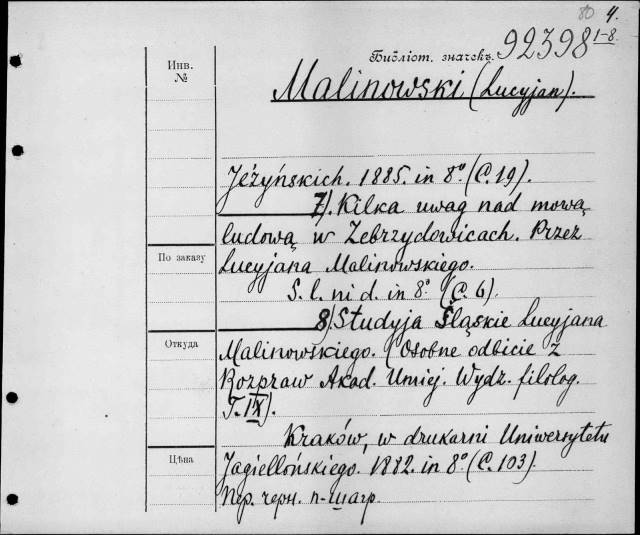 80 4.
Библіот. значекъ. 92398 1-8.
Инв.
№
Malinowski (Lucyjan).
Jeżyńskich. 1885. in 8° (C. 19).
7). Kilka uwag nad mową
ludową w Zebrzydowicach. Przez
По заказу
Lucyjana Malinowskiego.
S. l. ni d. in 8° (C. 6).
8) Studyja Śląskie Lucyjana
Откуда
Malinowskiego. (Osobne odbicie z
Rozpraw Akad. Umiej. Wydz. filolog.
T. IX).
Kraków, w drukarni Uniwersytetu
Цѣна
Jagiellońskiego. 1882. in 8° (C. 103).
Пер. черн. п-шагр.